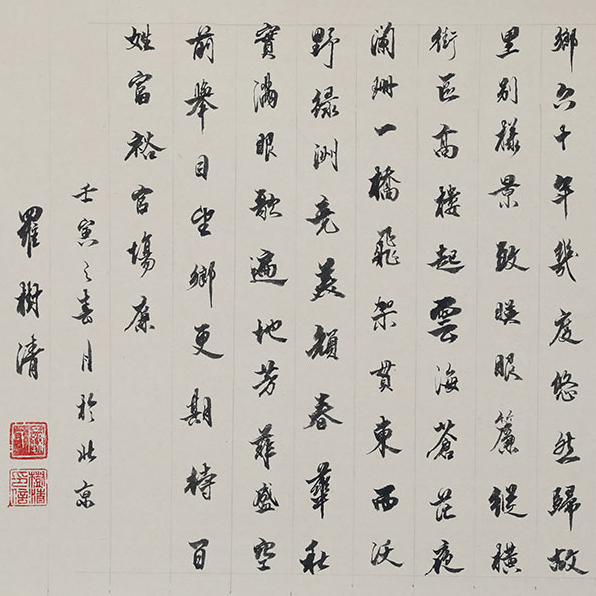 鄉六十年幾度悠然歸故
里别樣景致暎眼簾縱橫
街區高樓起雲海蒼茫夜
闌珊一橋飛架貫東西沃
野緑洲竞美顔春華秋
實滿眼歌遍地芳菲盛空
前舉目望鄉更期待百
姓富裕官場廉
壬寅之春月於北京
羅樹清